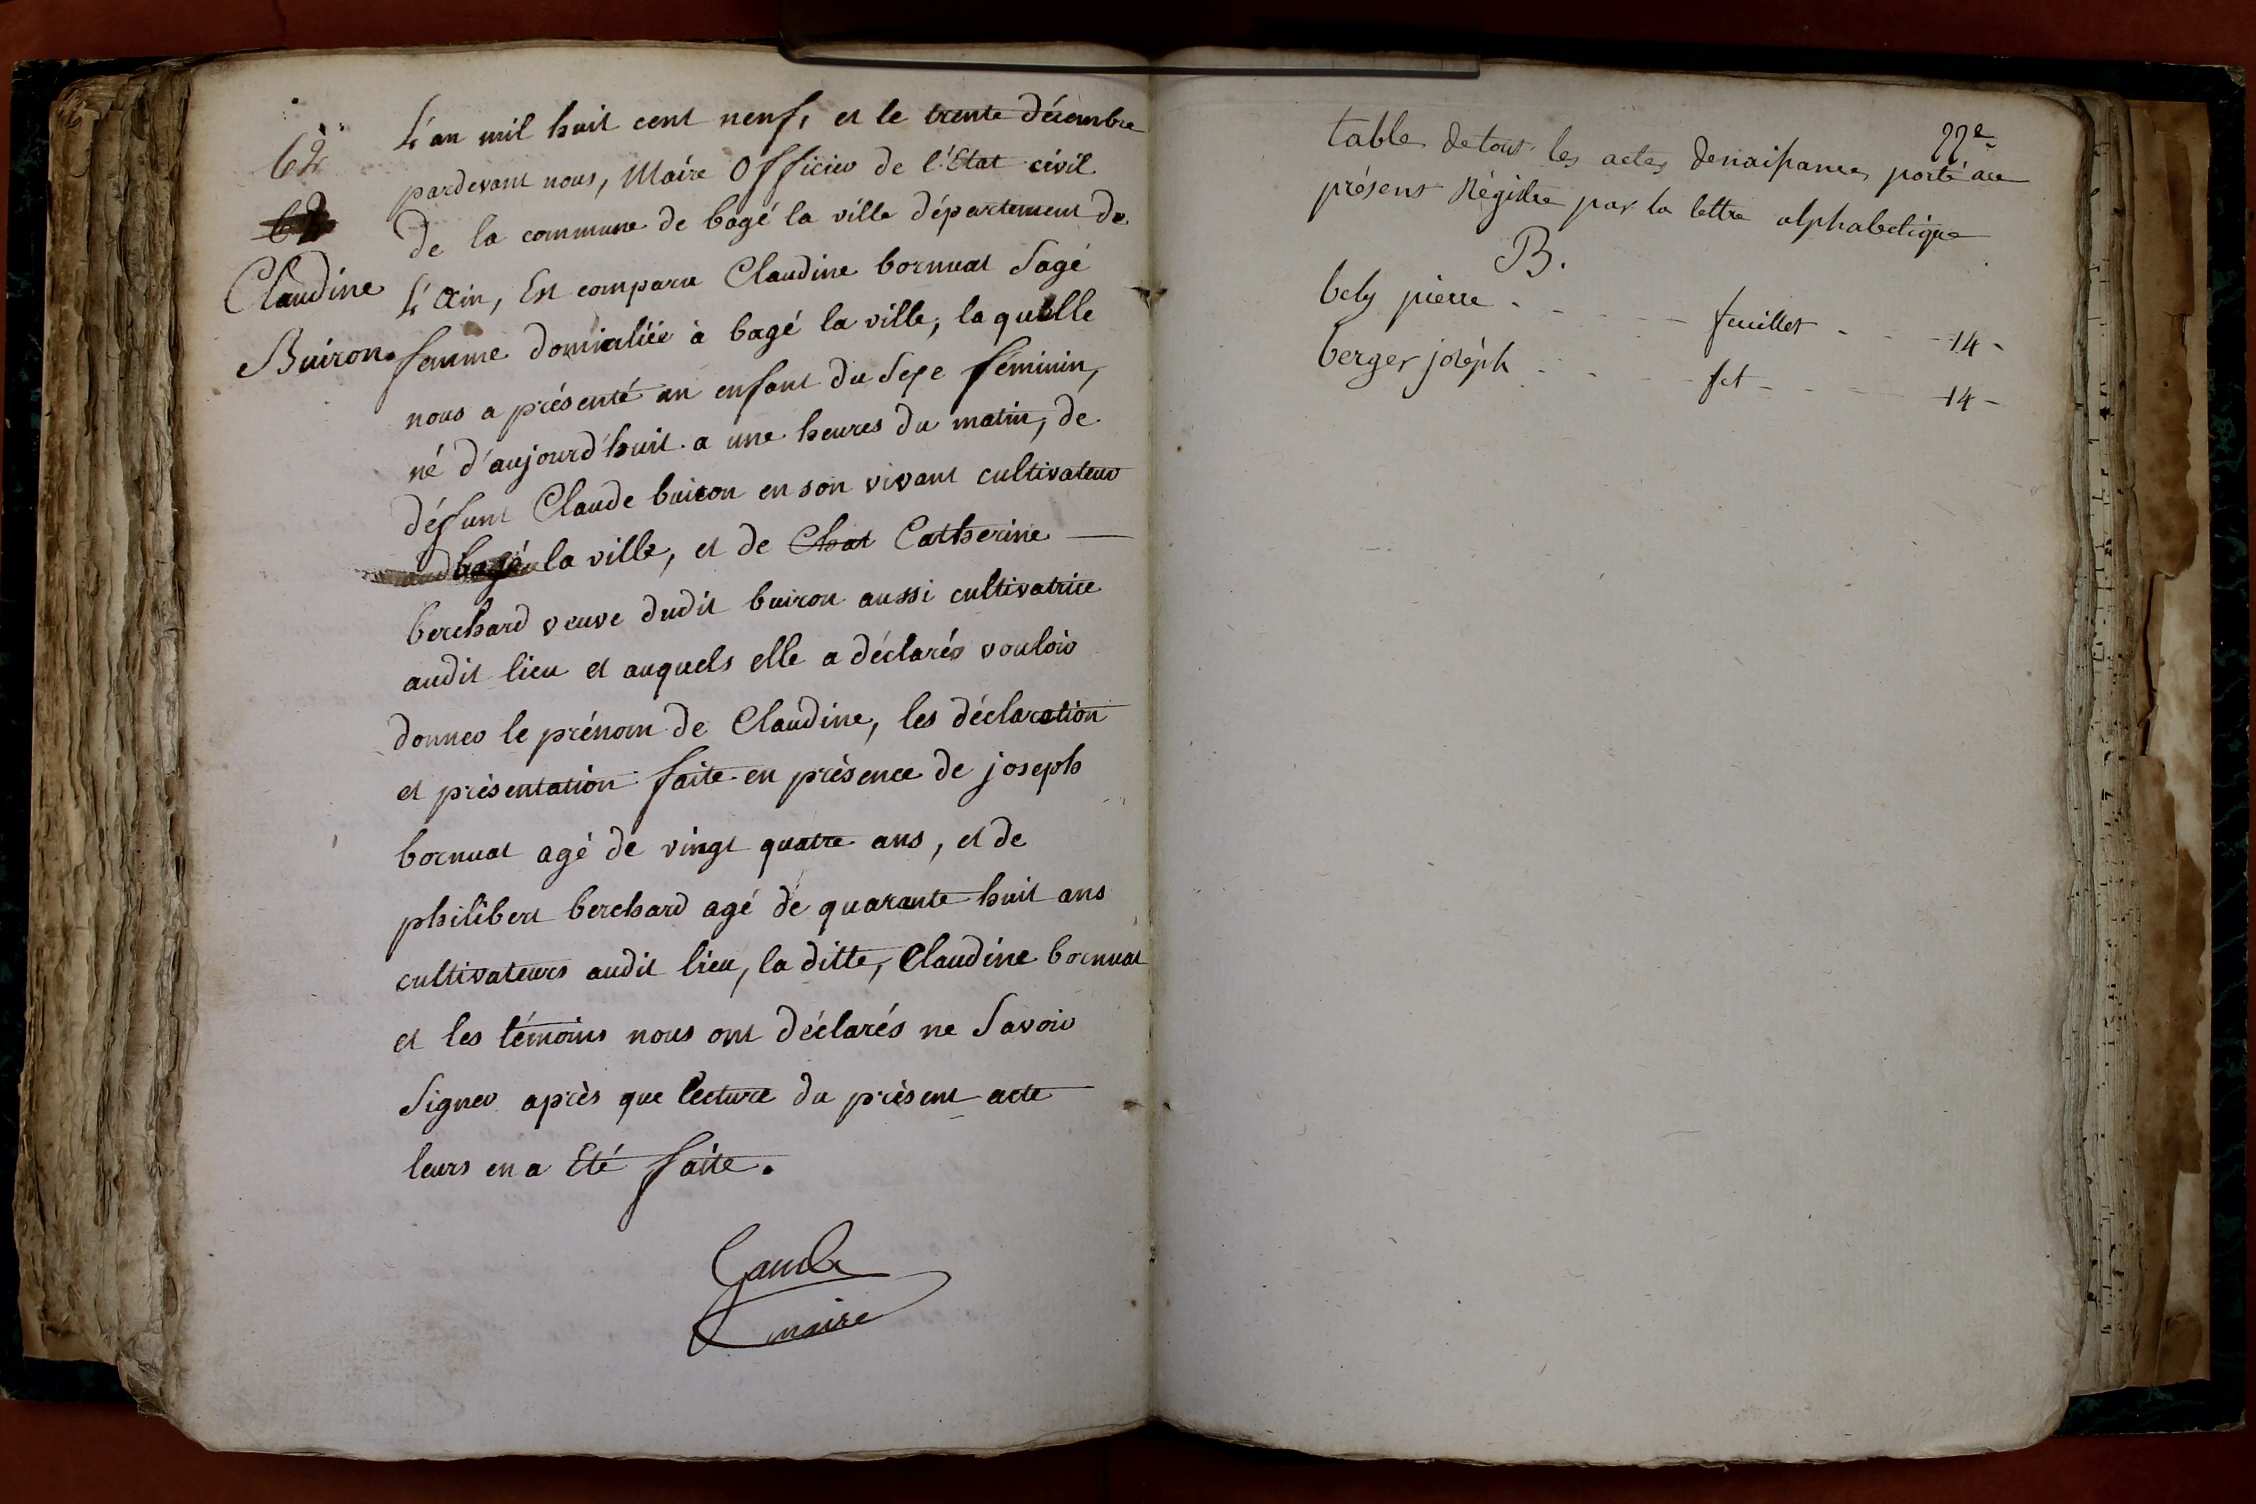 62
Claudine
Buiron
L'an mil huit cent neuf, et le trente décembre
pardevant nous, Maire Officier de l'Etat civil
de la commune de bagé la ville département de
L'Ain, Est comparu Claudine bornuat Sagé
femme domicilièe à bagé la ville, la quelle
nous a présenté un enfant du Sexe féminin,
né d'aujourd'huit a une heures du matin, de
déffunt Claude buiron en son vivant cultivateur
bagé la ville, et de Chat Catherine
berchard veuve dudit buiron aussi cultivatrice
audit lieu et auquels elle a déclarés vouloir
donner le prénom de Claudine, les déclaration
et présentation faite en présence de joseph
bornuat agé de vingt quatre ans, et de
philibert berchard agé de quarante huit ans
cultivateurs audit lieu, la ditte, Claudine bornuat
et les témoins nous ont déclarés ne Savoir
Signer après que lecture du présent acte
leurs en a Eté faite.
maire
22e
table de tout les actes de naissances porté au
présent Régistre par la lettre alphabetique
B.
bely pierre - - - - - feuillet - - - 14 -
berger joséph - - - - fet - - - - 14 -